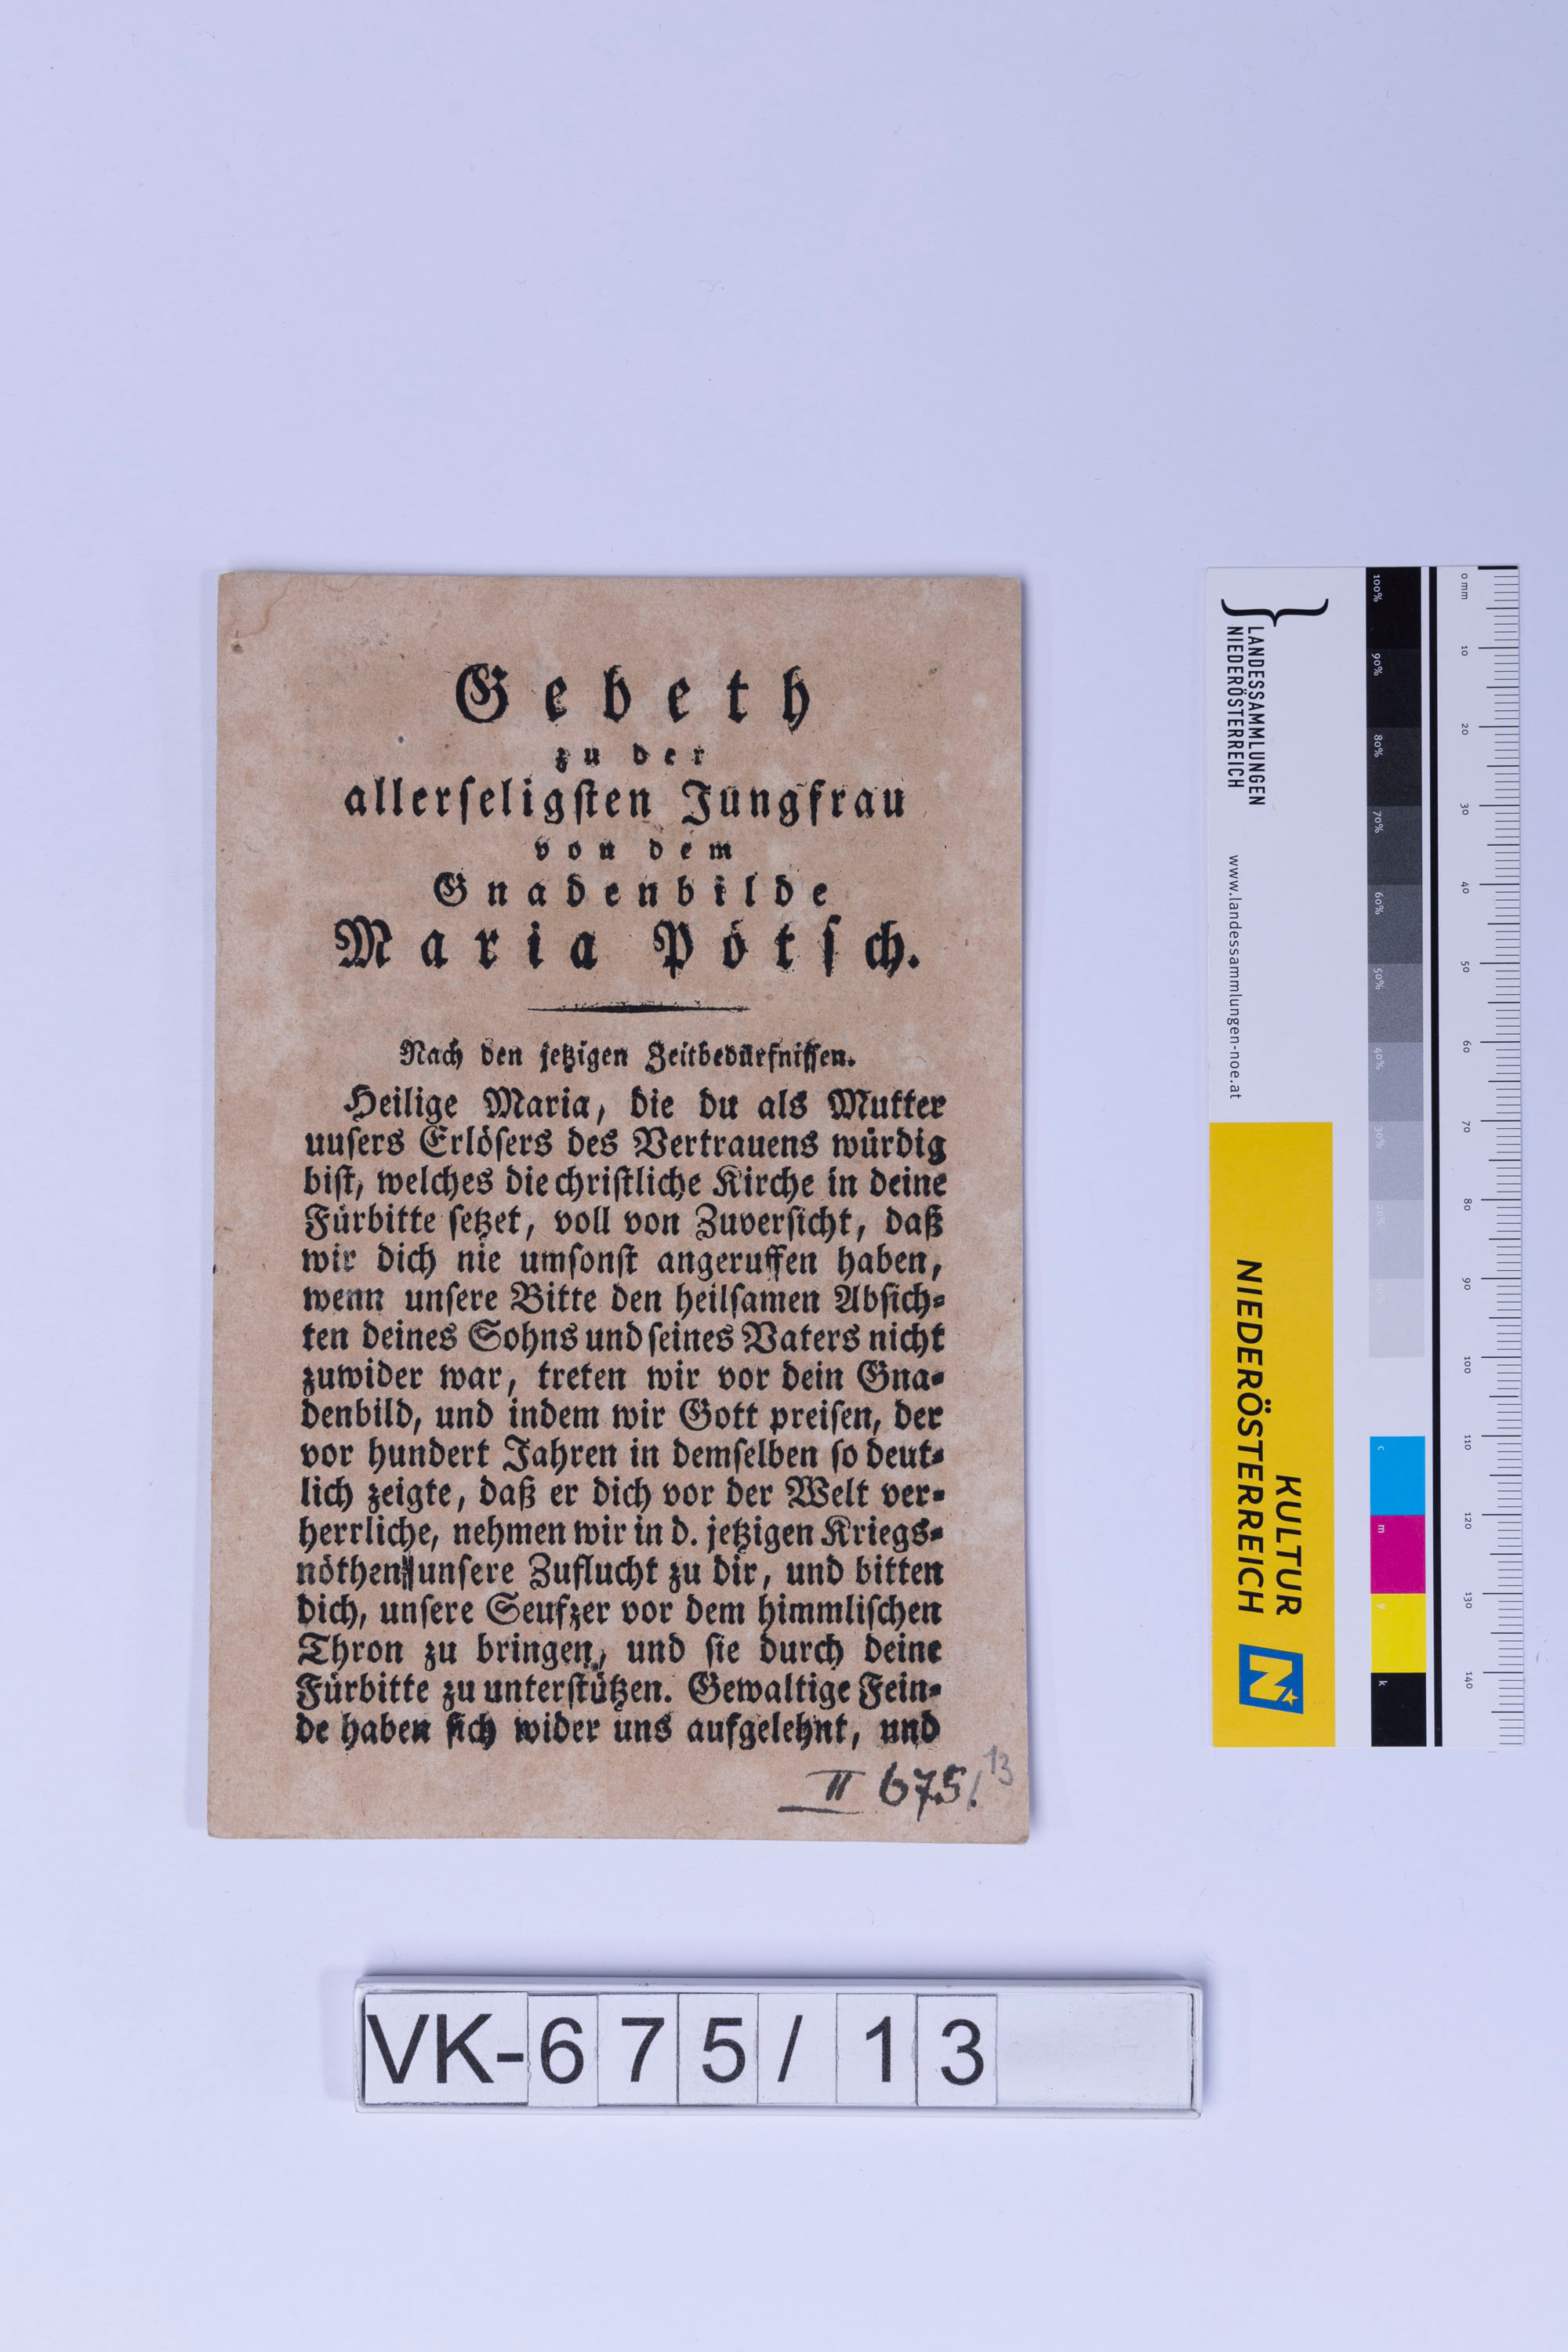 Gebeth
zu der
allerseligsten Jungfrau
von dem
Gnadenbilde
Maria Pötsch.
Nach den jetzigen Zeitbedürfnissen.
Heilige Maria, die du als Mutter
uusers Erlösers des Vertrauens würdig
bist, welches die christliche Kirche in deine
Fürbitte setzet, voll von Zuversicht, daß
wir dich nie umsonst angeruffen haben,
wenn unsere Bitte den heilsamen Absich-
ten deines Sohns und seines Vaters nicht
zuwider war, treten wir vor dein Gna-
denbild, und indem wir Gott preisen, der
vor hundert Jahren in demselben so deut-
lich zeigte, daß er dich vor der Welt ver-
herrliche, nehmen wir in d. jetzigen Kriegs-
nöthen unsere Zuflucht zu dir, und bitten
dich, unsere Seufzer vor dem himmlischen
Thron zu bringen, und sie durch deine
Fürbitte zu unterstützen. Gewaltige Fein-
de haben sich wider uns aufgelehnt, und
II 675/13
VK-675/13
LANDESSAMMLUNGEN
NIEDERÖSTERREICH
www.landessammlungen-noe.at
KULTUR
NIEDERÖSTERREICH
N
100%
90%
80%
70%
60%
50%
40%
30%
20%
c
m
y
k
0 mm
10
20
30
40
50
60
70
80
90
100
110
120
130
140